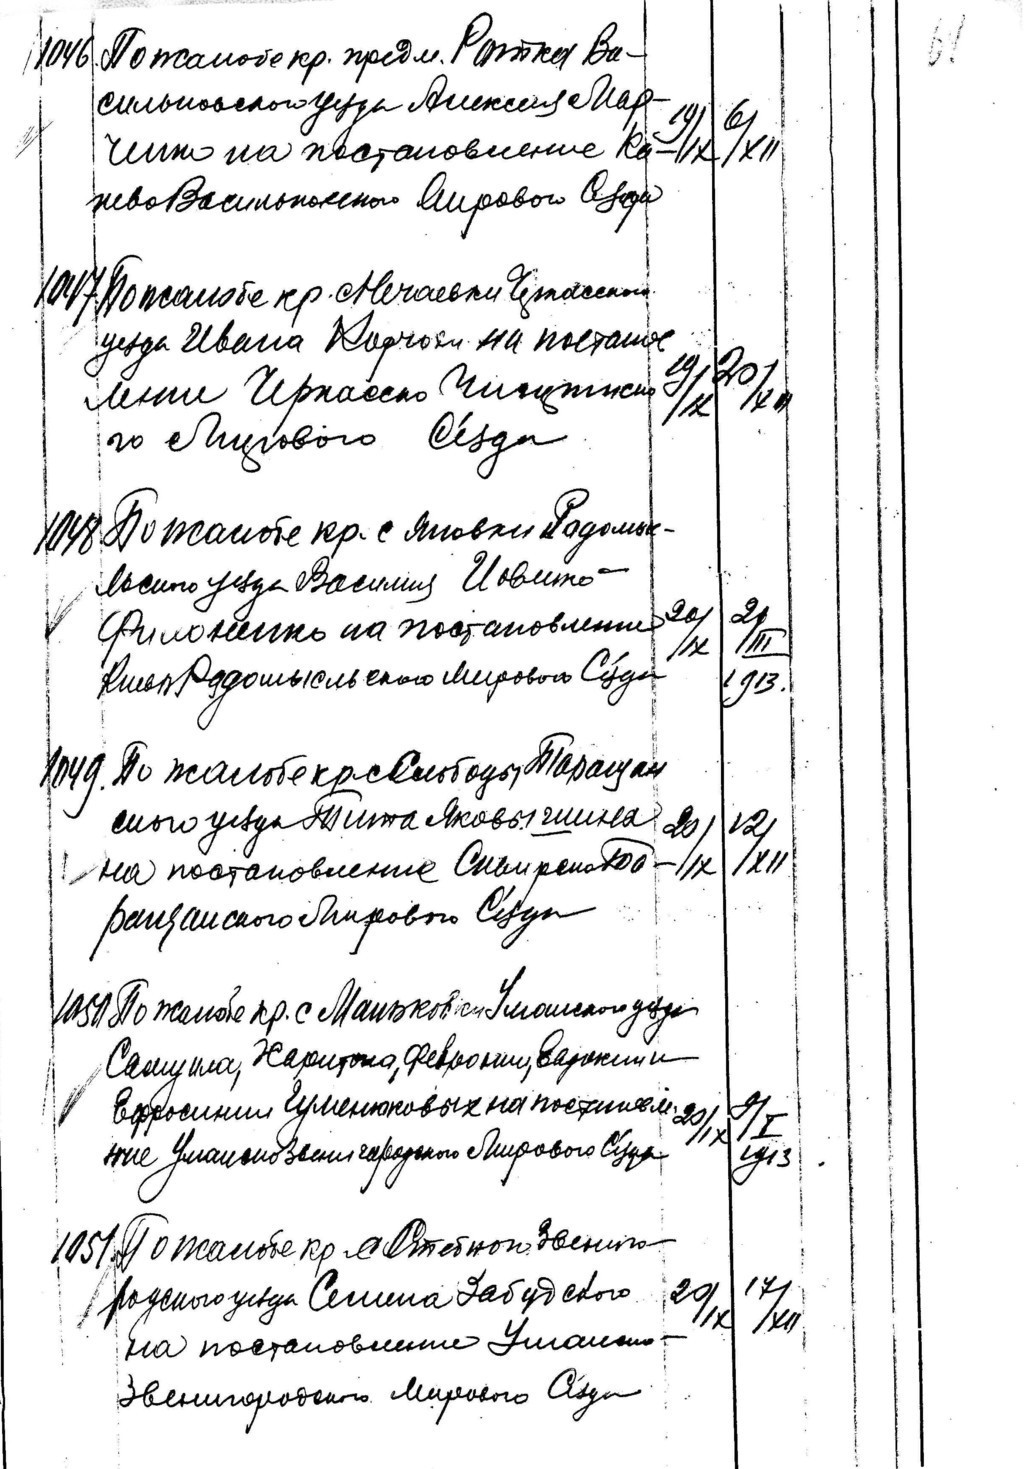 61
1046. По жалобе кр. предм. Ратка Ва-
сильковского уезда Алексея Мар-
ченко на постановление Ки- 19/IX 6/XII
ево Васильковского Мирового Съезда
1047. По жалобе кр. с Нечаевки Черкасского
уезда Ивана на постанов
ление Черкасско Чигиринско 19/IX 20/XII
го Мирового Съезда
1048. По жалобе кр. с Яновки Радомыс-
льского уезда Василия
Филоненко на постановление 20/IX 21/III
Киево Радомысльского Мирового Съезда 1913.
1049. По жалобе кр с Слободы Таращан
ского уезда Тита Яковы 20/IX 12/XII
на постановление Сквирско Та-
ращанского Мирового Съезда
1050 По жалобе кр. с Маньковки Уманского уезда
Самуила, Харитона, Февронии, Евдокии и
Ефросинии Гуменюковых на постановле 20/IX 9/I
ние Уманско Звенигородского Мирового Съезда 1913.
1051. По жалобе кр с Звениго-
родского уезда Семена Забудского 20/IX 17/XII
на постановление Уманско-
Звенигородского Мирового Съезда